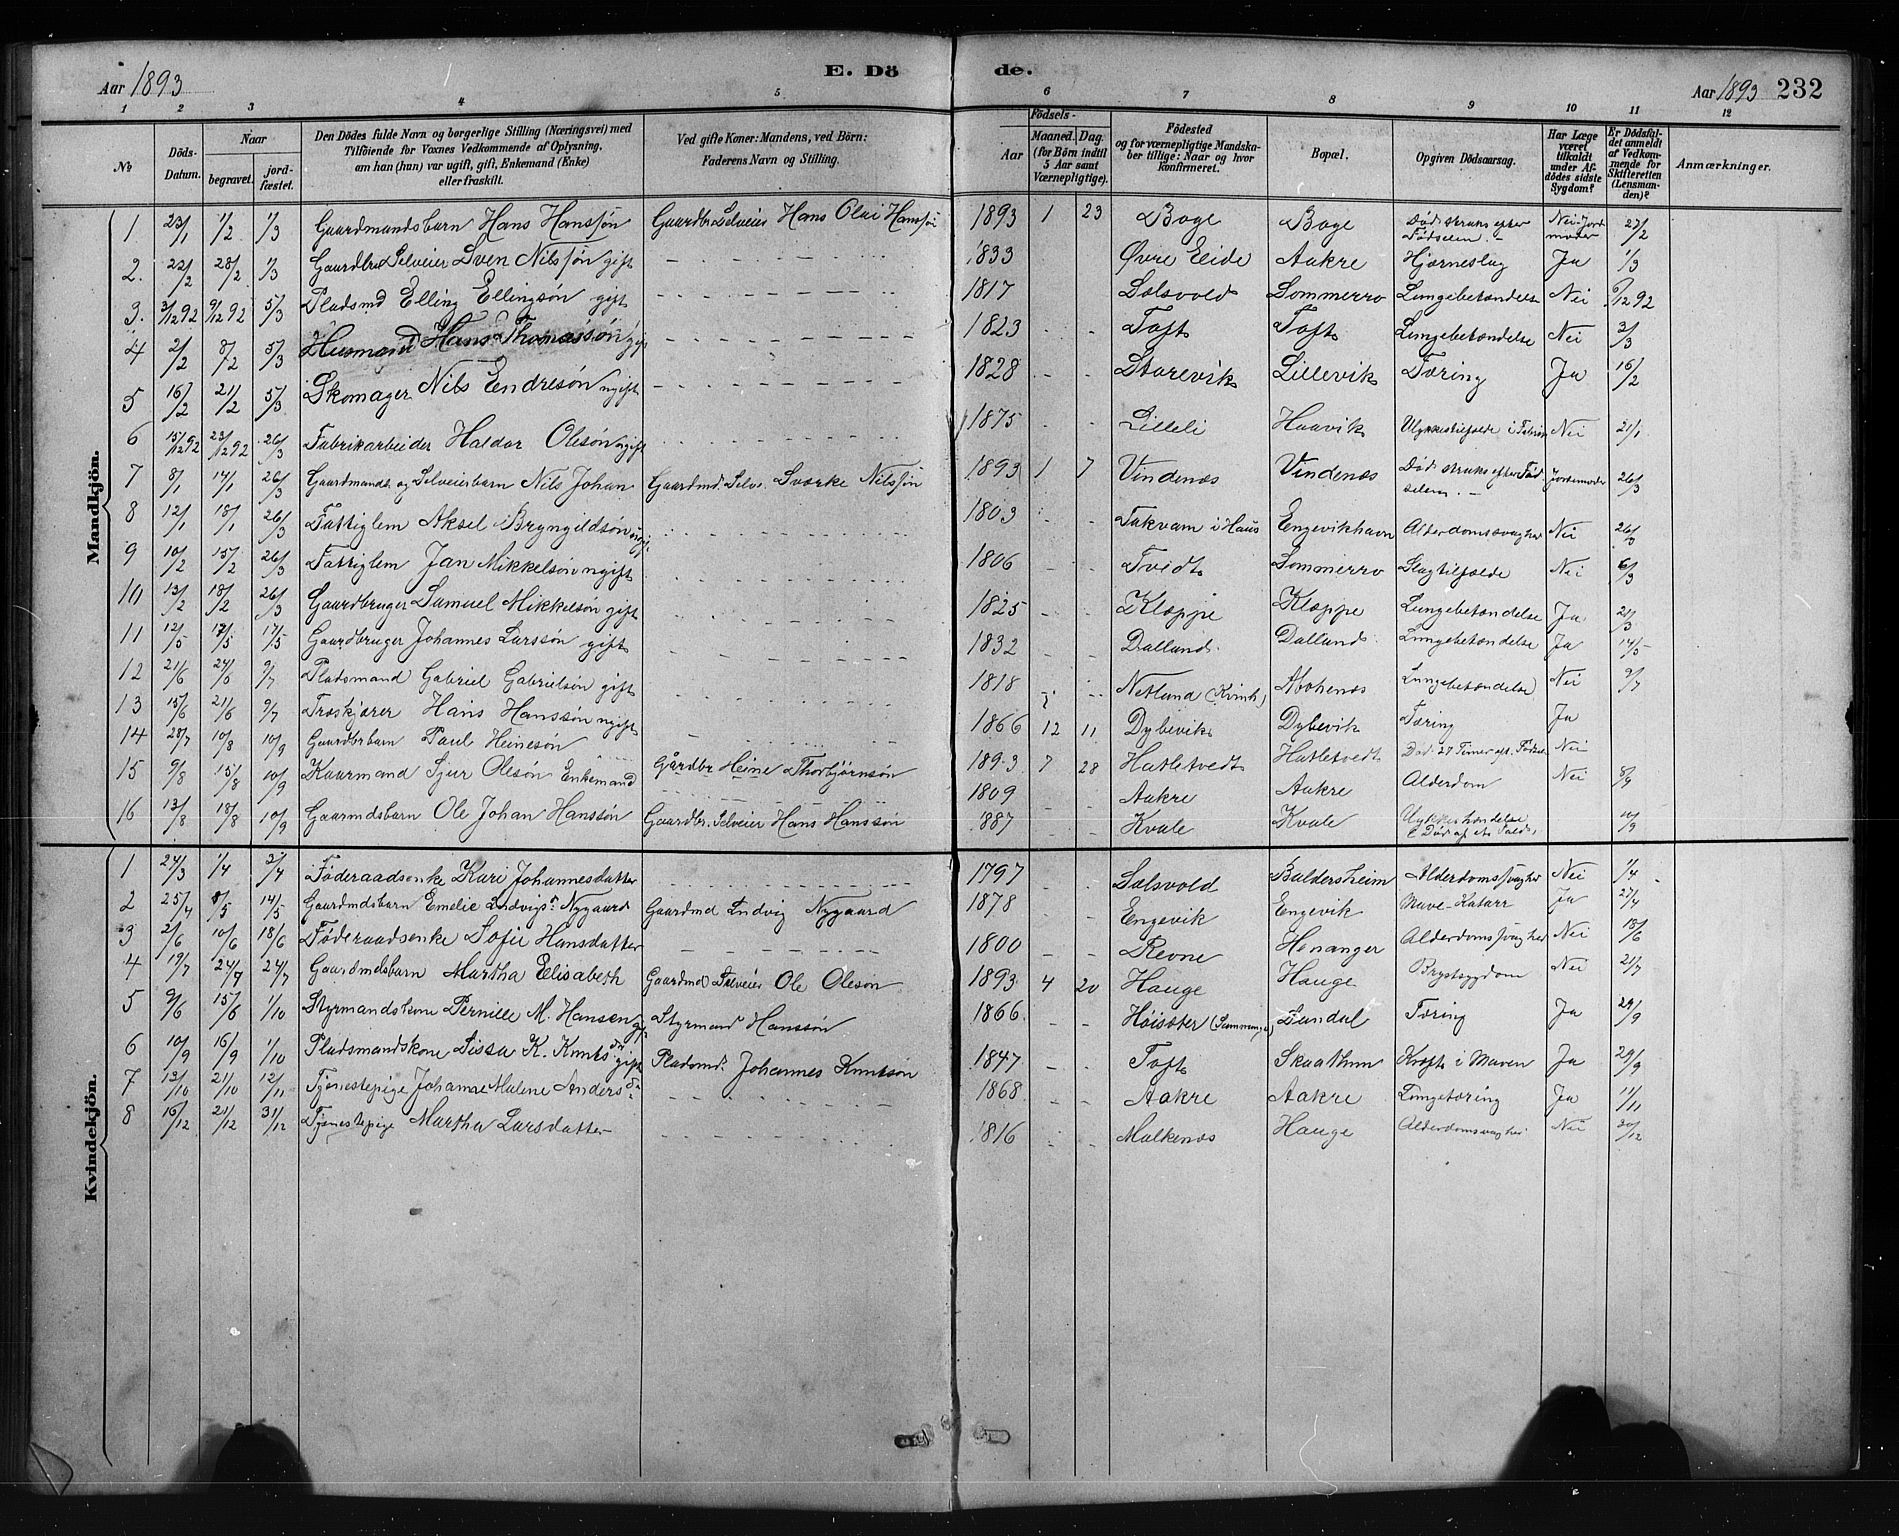 Aar 1893 E. Dö de. Aar 1893 232
1 2 3 4 5 6 7 8 9 10 11 12
№ Döds-Datum. Naar begravet. jord-fæstet. Den Dödes fulde Navn og borgerlige Stilling (Næringsvei) med Tilföiende for Voxnes Vedkommende af Oplysning, om han (hun) var ugift, gift, Enkemand (Enke) eller fraskilt. Ved gifte Koner: Mandens, ved Börn: Faderens Navn og Stilling. Födsels- Aar Maaned. Dag. (for Börn indtil 5 Aar samt Værnepligtige). Födested og for værnepligtige Mandskaber tillige: Naar og hvor konfirmeret. Bopæl. Opgiven Dödsaarsag. Har Læge været tilkaldt under Afdödes sidste Sygdom? Er Dödsfaldet anmeldt af Vedkommende for Skifteretten (Lensmanden)? Anmærkninger.
Mandkjön.
1 23/1 1/2 1/3 Gaardmandsbarn Hans Hanssøn Gaardbr Selveier Hans Olai Hanssøn 1893 1 23 Boge Boge Død straks efter Fødselen. - Nei Jordmoder 27/2
2. 22/2 28/2 1/3 Gaardbr Selveier Sven Nilssøn gift 1833 Øvre Eide Aakre Hjærneslag Ja 1/3
3. 3/12 92 9/12 92 5/3 Pladsmd Elling Ellingsøn gift 1817 Salsvold Sommerro Lungebetændelse Nei 6/12 92
4 2/2 8/2 5/3 Husmand Hans Thomassøn gift 1823 Toft Toft Lungebetændelse Nei 3/3
5 16/2 21/2 5/3 Skomager Nils Endresøn ugift 1828 Storevik Lillevik Tæring Ja 16/2
6 15/12 92 23/12 92 26/3 Fabrikarbeider Haldor Olesøn ugift 1875 Lilleli Haavik Ulykkestilfælde i Fabrik Nei 21/1
7 8/1 14/1 26/3 Gaardmands og Selveierbarn Nils Johan Gaardmd. Selv. Sværke Nilssøn 1893 1 7 Vindenæs Vindenæs Død straks efter Fødselen. - Jordemoder 26/3
8 12/1 18/1 26/3 Fattiglem Aksel Bryngildsøn ugift 1803 Takvam i Haus Engevikhavn Alderdomssvaghed Nei 26/3
9 10/2 15/2 26/3 Fattiglem Jan Mikkelsøn ugift 1806 Tvidt Sommerro Slagtilfælde Nei 6/3
10 13/2 18/2 26/3 Gaardbruger Samuel Mikkelsøn gift 1825 Kleppe Kleppe Lungebetændelse Ja 21/3
11 12/5 17/5 17/5 Gaardbruger Johannes Larssøn gift 1832 Dalland Dalland Lungebetændelse Ja 14/5
12 21/6 24/6 9/7 Pladsmand Gabriel Gabrielsøn gift 1818 Netland (Kvinh.) Lungebetændelse Nei 9/7
13 15/6 21/6 9/7 Træskjærer Hans Hanssøn ugift 1866 12 11 Dybevik Dybevik Tæring Ja
14 28/7 10/8 10/9 Gaardbrbarn Paul Heinesøn Gårdbr Heine Thorbjørnsøn 1893 7 28 Hatletvedt Hatletvedt Død 27 Timer eft. Fødsel Nei
15 9/8 15/8 10/9 Kaarmand Sjur Olesøn Enkemand 1809 Aakre Aakre Alderdom Nei 8/9
16 13/8 18/8 10/9 Gaarmdsbarn Ole Johan Hanssøn Gaardbr. Selveier Hans Hanssøn 1887 Kvale Kvale Ulykkeshændelse Død af et Fald 10/9
Kvindekjön.
1 24/3 1/4 2/4 Føderaadsenke Kari Johannesdatter 1797 Salsvold Baldersheim Alderdomssvaghed Nei 1/4
2 25/4 8/5 14/5 Gaardmdsbarn Emelie Ludvigsdr Nygaard Gaardmd Ludvig Nygaard 1878 Engevik Engevik Mave-Katarr Ja 27/4
3 2/6 10/6 18/6 Føderaadsenke Sofie Hansdatter 1800 Revne Henanger Alderdomssvaghed Nei 18/6
4 19/7 24/7 24/7 Gaardmdsbarn Martha Elisabeth Gaardmd Selveier Ole Olesøn 1893 4 20 Hauge Hauge Brystsygdom Nei 21/7
5 9/6 15/6 1/10 Styrmandskone Pernille M. Hansen gift Styrmand Hanssøn 1866 Høisæter Sundal Tæring Ja 29/9
6 10/9 16/9 1/10 Pladsmandskone Sissa K. Knutsdr gift Pladsmd. Johannes Knutsøn 1847 Toft Skaathun Kræft i Maven Ja 29/9
7 13/10 21/10 12/11 Tjenestepige Johanne Malene Andersdr 1868 Aakre Aakre Lungetæring Ja 11/11
8 16/12 21/12 31/12 Tjenestepige Martha Larsdatter 1816 Malkenæs Hauge Alderdomssvaghed Nei 20/12